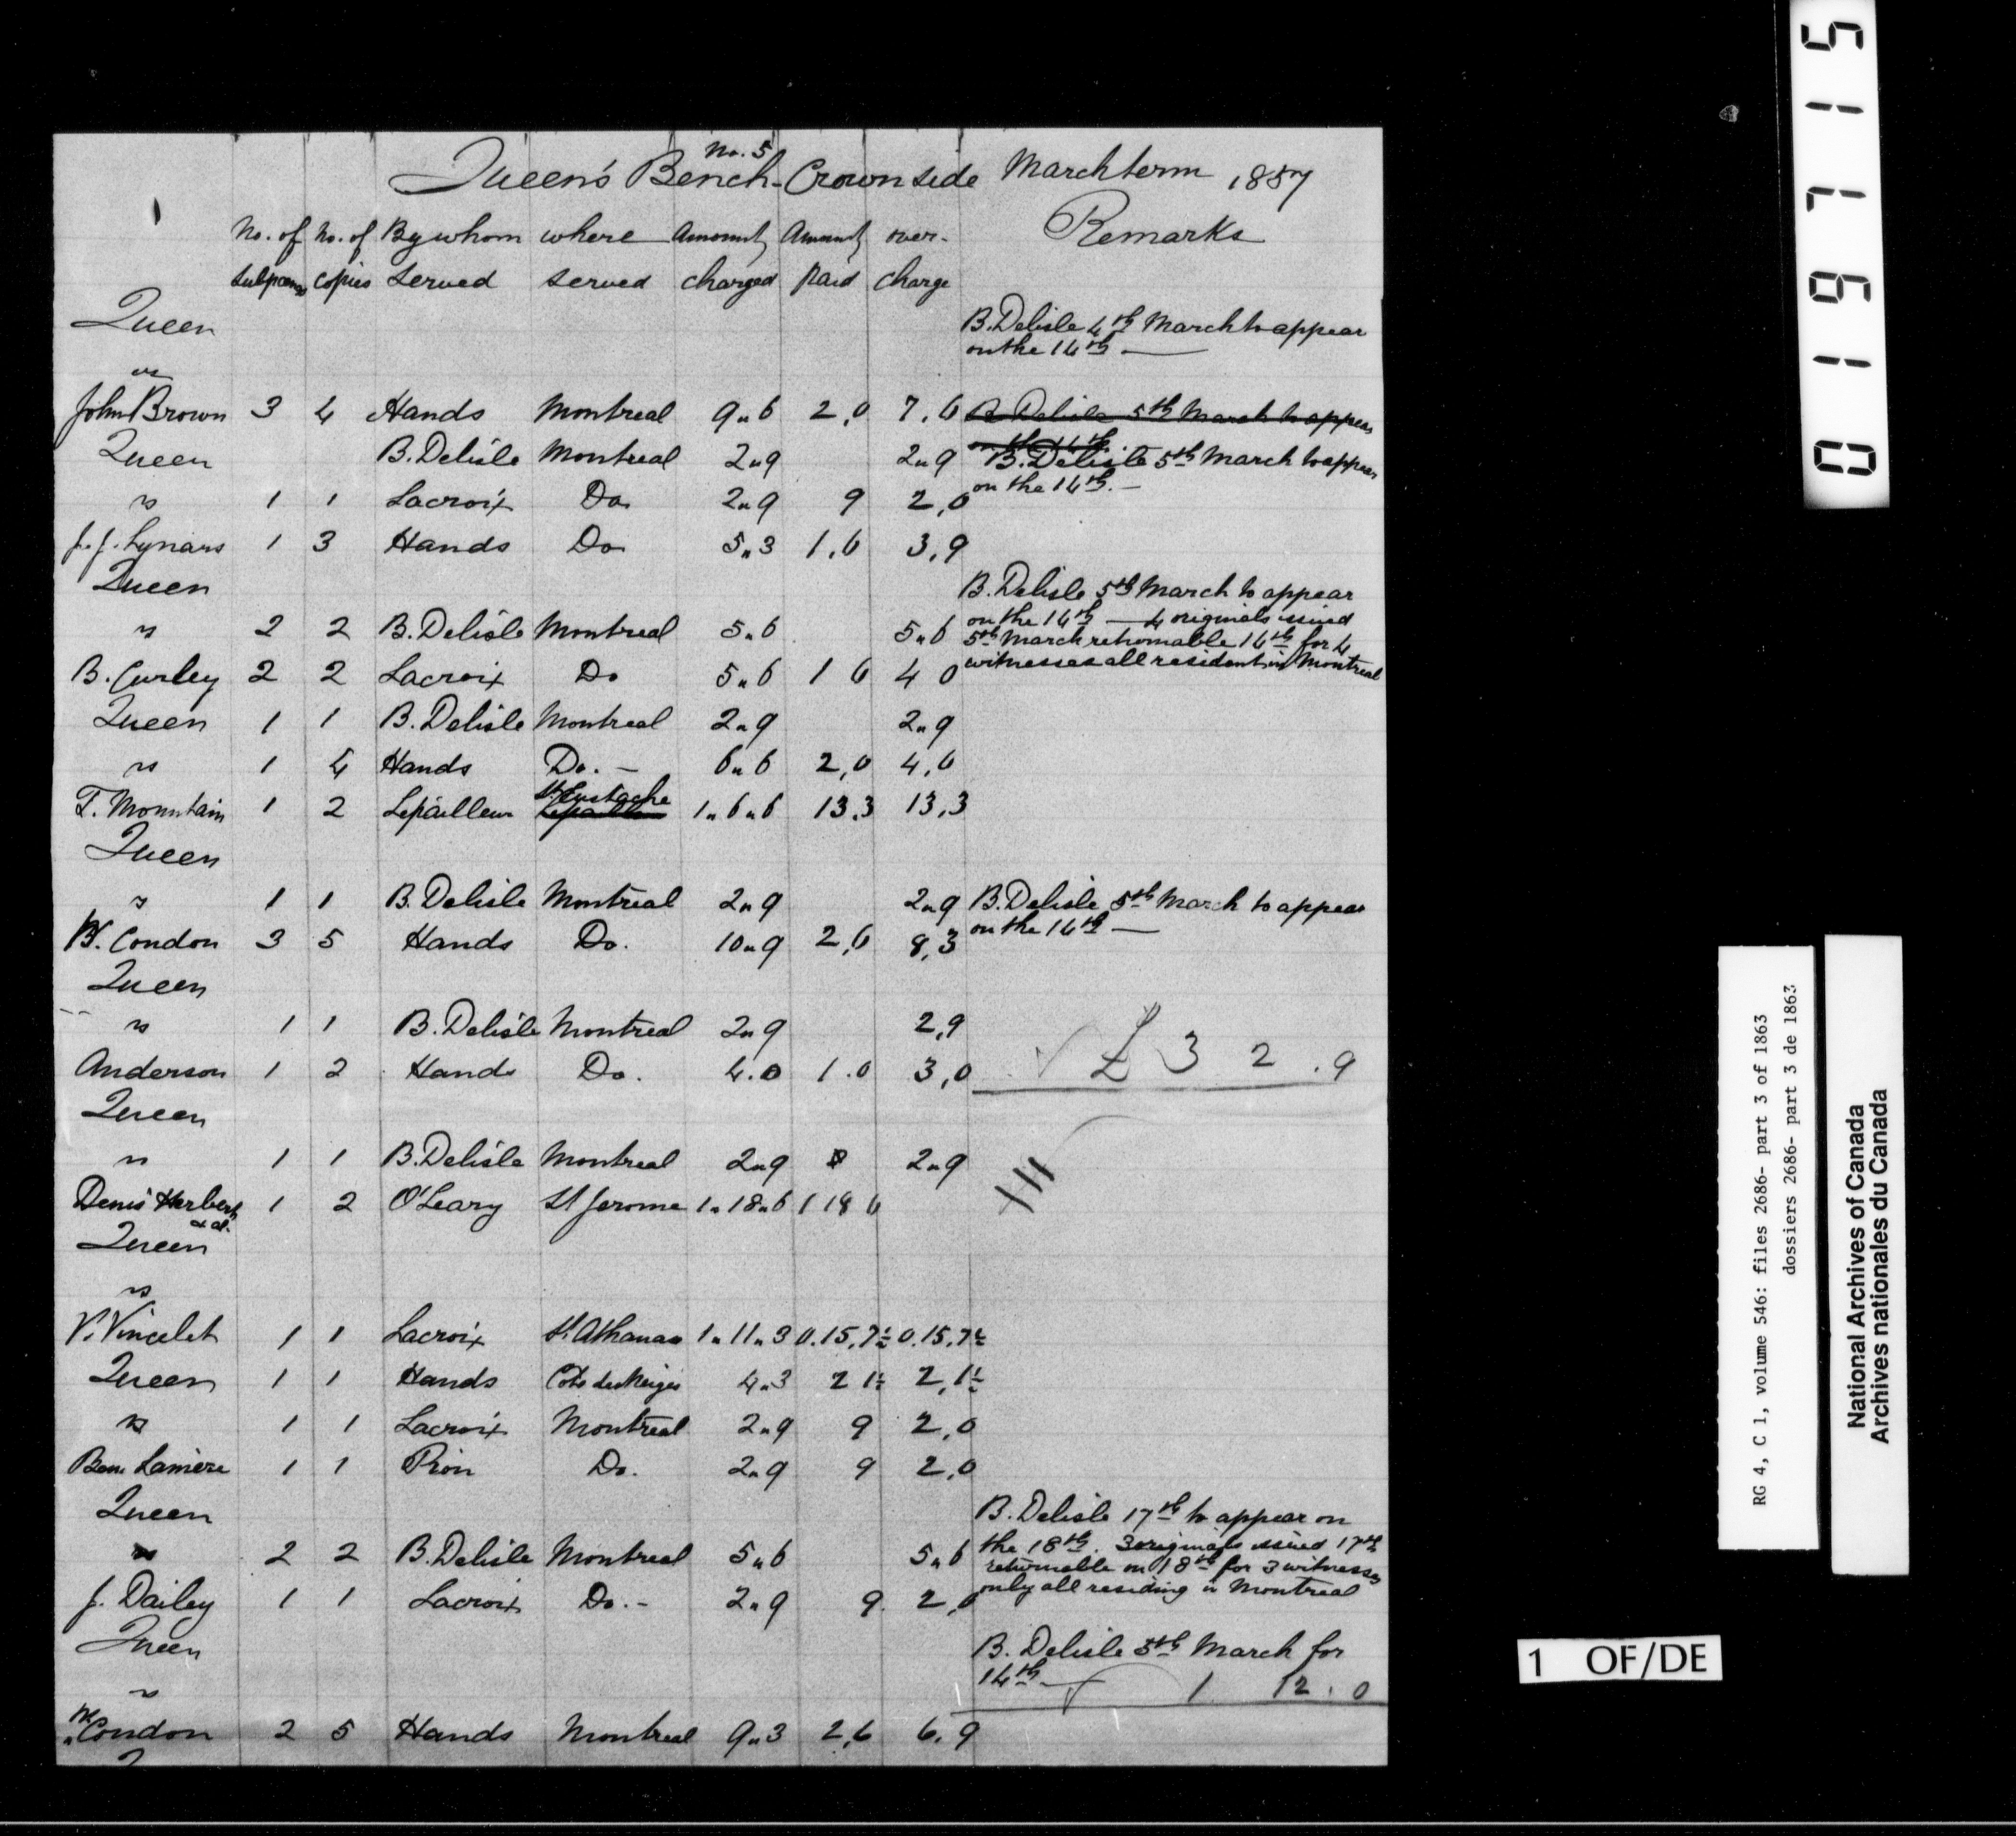 No. 5
Queen's Bench - Crown side March term 1857
No. of No. of By whom where Amount Amount over- Remarks
subpoenas copies served served charged paid charge
Queen B. Delisle 4th March to appear
on the 14th —
vs
John Brown 3 4 Hands Montreal 9"6 2,0 7,6 B. Delisle 5th March to appear
on the 14th
Queen B. Delisle Montreal 2"9 2"9 B. Delisle 5th March to appear
on the 14th. —
vs 1 1 Lacroix Do 2"9 9 2,0
J. J. 1 3 Hands Do 5"3 1,6 3,9
Queen B. Delisle 5th March to appear
on the 14th — 4 originals issued
vs 2 2 B. Delisle Montreal 5"6 5"6 5th March returnable 14th for 4
witnesses all resident in Montreal
B. Curley 2 2 Lacroix Do 5"6 1 6 4 0
Queen 1 1 B. Delisle Montreal 2"9 2"9
vs 1 4 Hands Do. — 6"6 2,0 4,6
St. Eustache
T. Mountain 1 2 Lepailleur Lepailleur 1"6"6 13.3 13,3
Queen
vs 1 1 B. Delisle Montreal 2"9 2"9 B. Delisle 5th March to appear
on the 14th —
W. Condon 3 5 Hands Do. 10"9 2,6 8,3
Queen
vs 1 1 B. Delisle Montreal 2"9 2,9
Anderson 1 2 Hands Do. 4.0 1.0 3,0 £ 3 2 . 9
Queen
vs 1 1 B. Delisle Montreal 2"9 2"9
Denis Herbert 1 2 O'Leary St Jerome 1"18"6 1 18 6
& al.
Queen
vs
V. Vincelet 1 1 Lacroix St. Athanase 1"11"3 0.15,7½ 0.15,7½
Queen 1 1 Hands Cote des Neiges 4"3 2 1½ 2,1½
vs 1 1 Lacroix Montreal 2"9 9 2,0
1 1 Pion Do. 2"9 9 2,0
Queen B. Delisle 17th to appear on
the 18th. 3 originals issued 17th
vs 2 2 B. Delisle Montreal 5"6 5"6 returnable on 18th for 3 witnesses
only all residing in Montreal
J. Dailey 1 1 Lacroix Do. - 2"9 9. 2,0
Queen B. Delisle 5th March for
14th — 1 12 . 0
vs
Condon 2 5 Hands Montreal 9"3 2,6 6,9
01675
RG 4, C 1, volume 546: files 2686- part 3 of 1863
dossiers 2686- part 3 de 1863
National Archives of Canada
Archives nationales du Canada
1 OF/DE